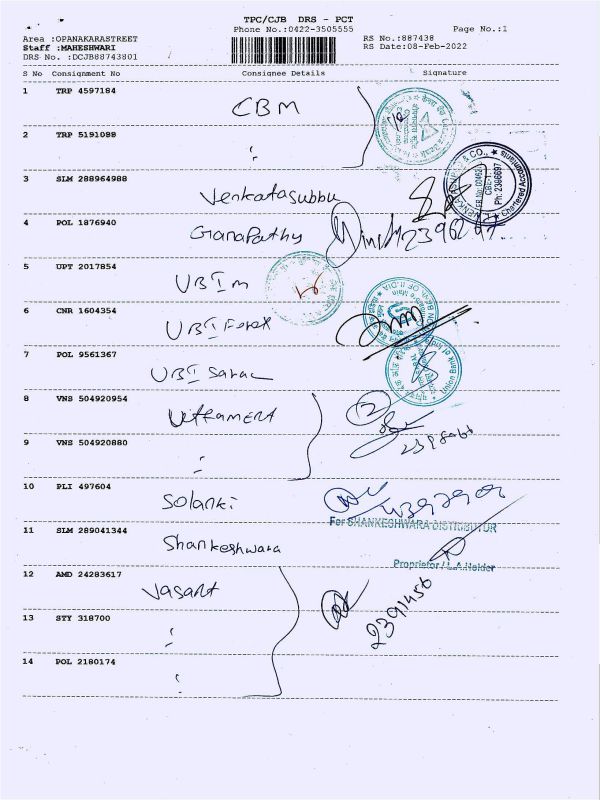 TPC/CJB DRS - PCT
Phone No.:0422-3505555
Page No.:1
Area :OPANAKARASTREET
RS No.:887438
Staff :MAHESHWARI
RS Date:08-Feb-2022
DRS No. :DCJB88743801
S No Consignment No Consignee Details Signature
1 TRP 4597184 CBM
2 TRP 5191088
3 SLM 288964988 Venkatasubbu
4 POL 1876940 Ganapathy
5 UPT 2017854 UBI m
6 CNR 1604354 UBI Forex
7 POL 9561367 UBI
8 VNS 504920954
9 VNS 504920880
10 PLI 497604 Solanki
For SHANKESHWARA DISTRIBUTOR
11 SLM 289041344 Shankeshwara
Proprietor / L.A.Holder
12 AMD 24283617 Vasant
2391456
13 STY 318700
14 POL 2180174
Chartered Accountants
Ph: 2396697
Union Bank of India